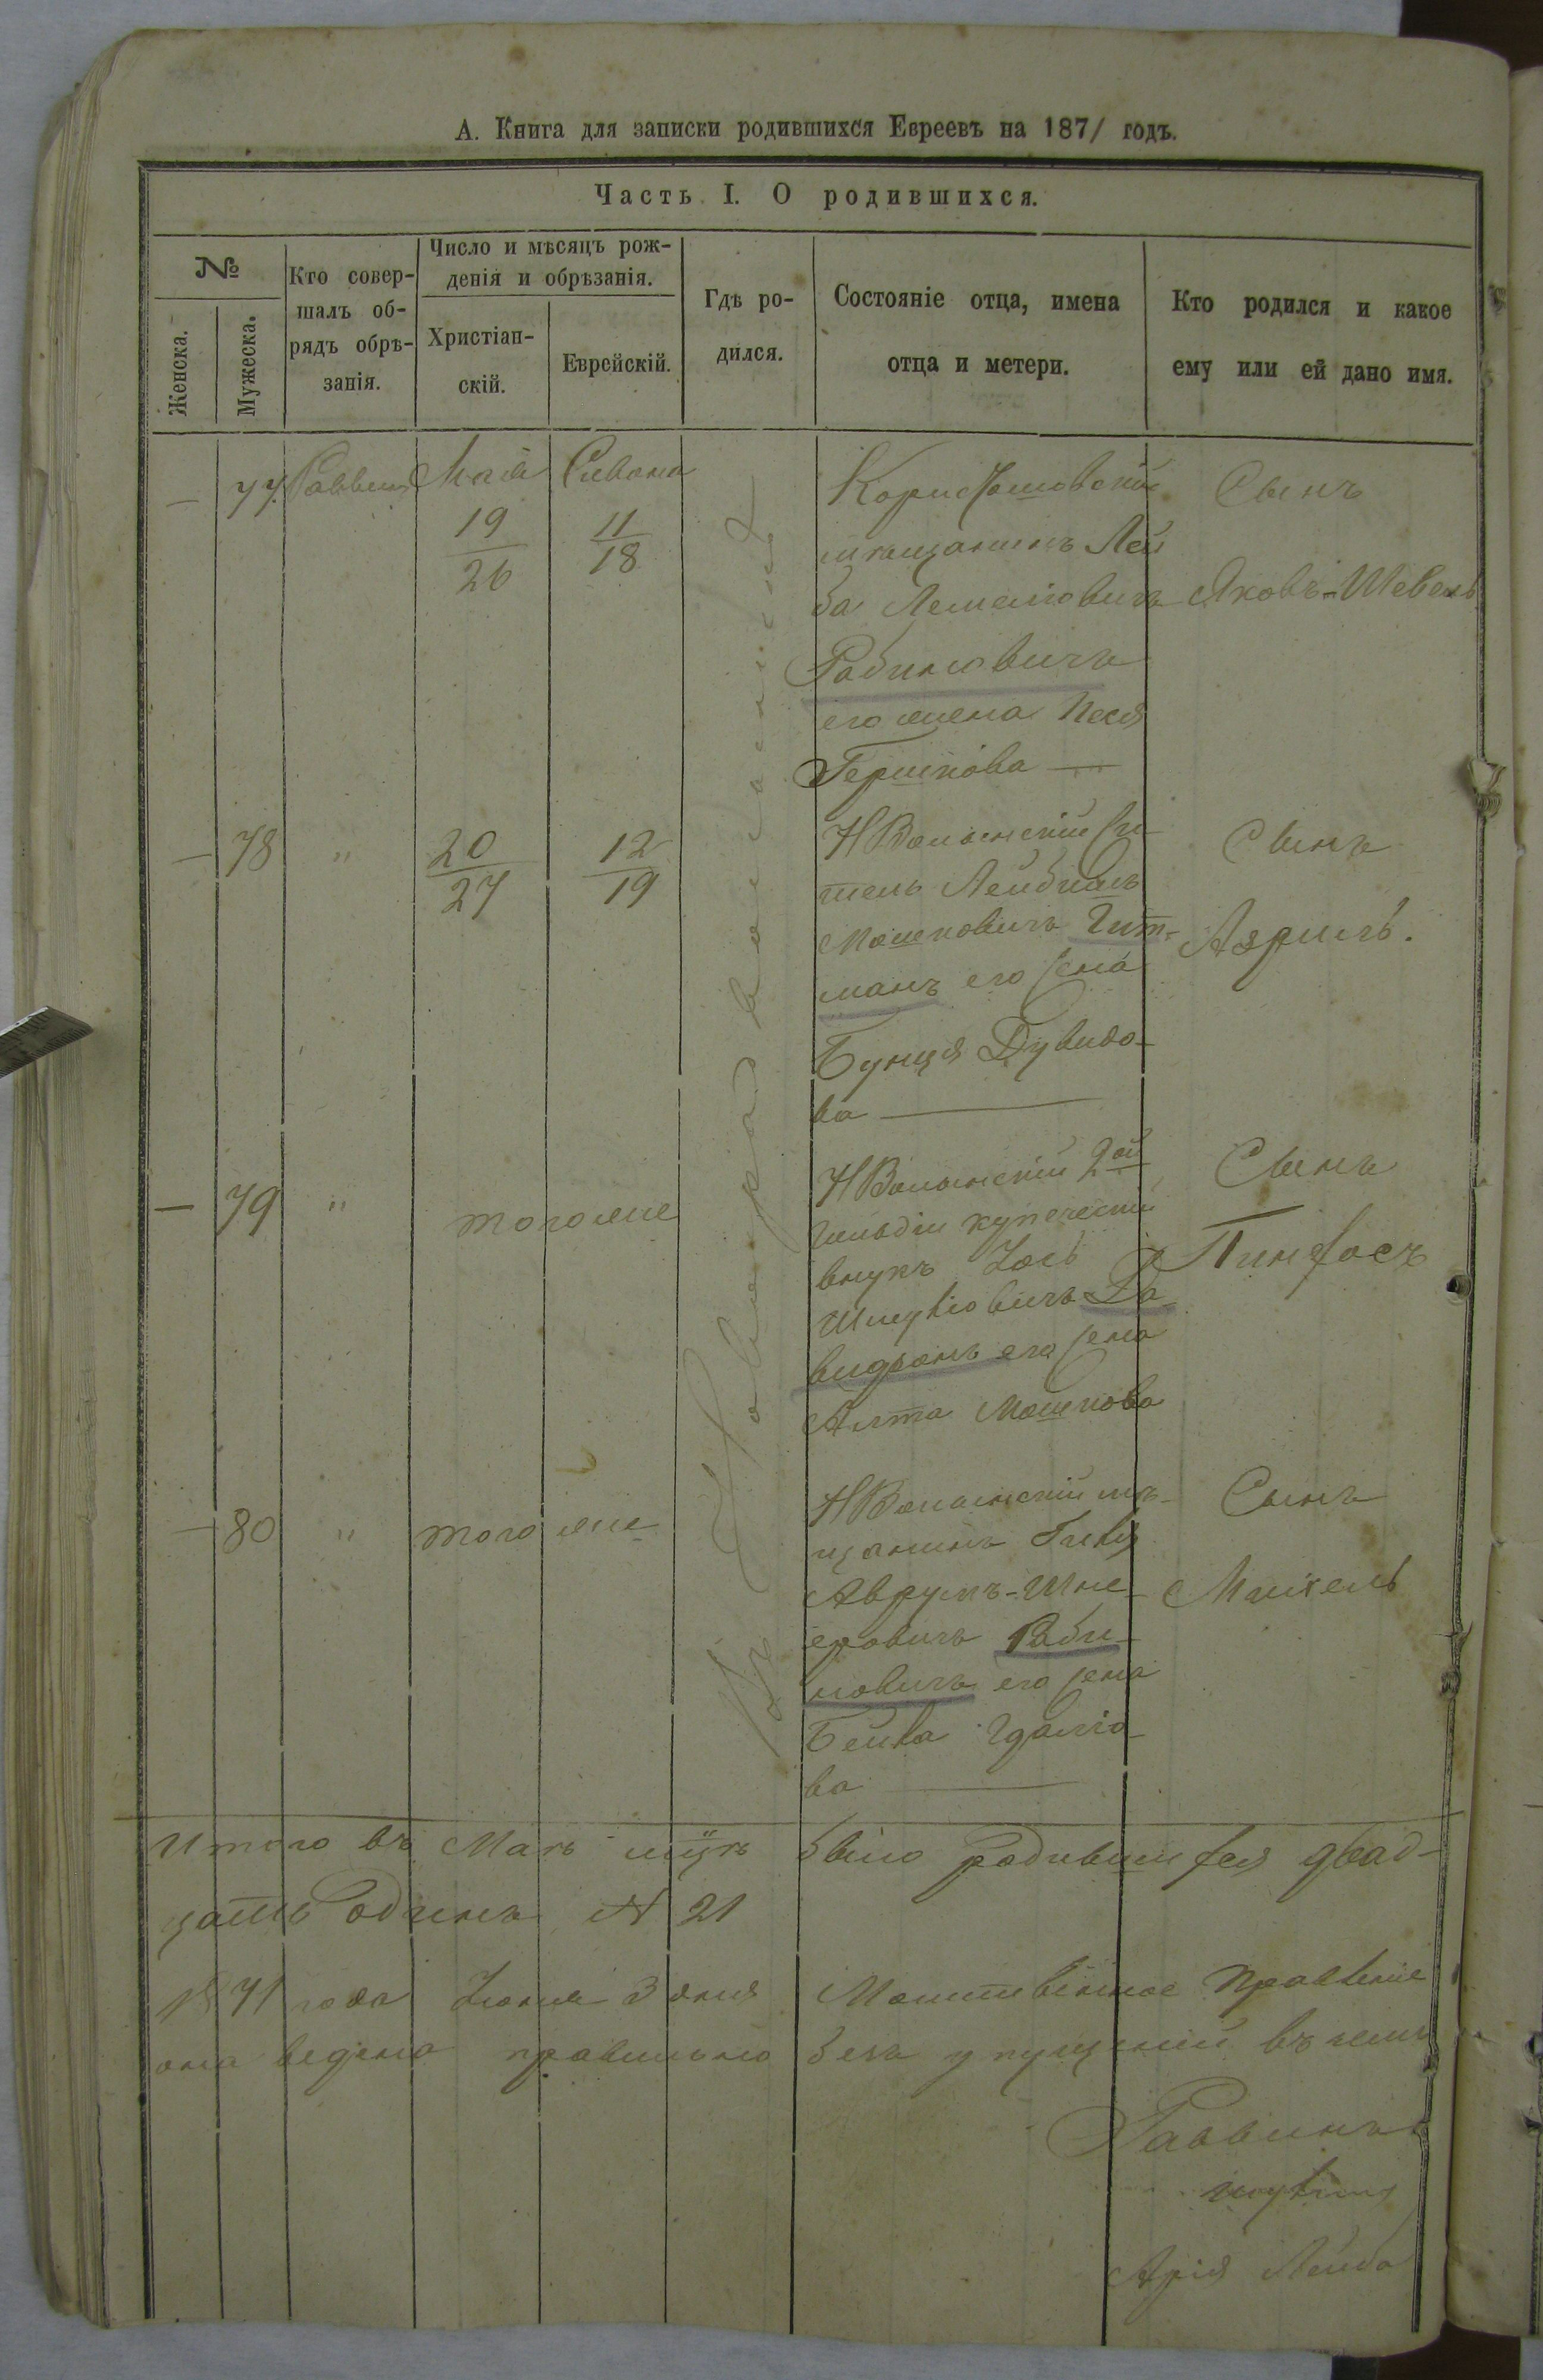 А. Книга для записки родившихся Евреевъ на 1871 годъ.
Часть I. О родившихся.
№
Женска.
Мужеска.
Кто совер-
шалъ об-
рядъ обрѣ-
занія.
Число и мѣсяцъ рож-
денія и обрѣзанія.
Христіан-
скій.
Еврейскій.
Гдѣ ро-
дился.
Состояніе отца, имена
отца и метери.
Кто родился и какое
ему или ей дано имя.
— 77 Раввинъ Мая Сивана
19 11
26 18
мѣщанинъ Лей
ба
Рабиновичъ
его жена Песя
Гершкова —
Сынъ
Яковъ-Шевель
— 78 " 20 12
27 19
НВолынскій жи-
тель
Мошковичъ Гит-
манъ его жена
Бунця Дувидо-
ва —
Сынъ
Азриль.
— 79 " того же
НВолынскій 2ой
гильдіи купеческій
внукъ Іось
Шмулiовичъ Да
видзонъ его жена
Алта Мошкова
Сынъ
Пинхасъ
— 80 " того же
НВолынскій мѣ-
щанинъ
Аврумъ-Шне-
еровичъ Раби-
новичъ его жена
Бейла Гдалiо-
ва —
Сынъ
Михель
Въ Новоградволынскѣ
Итого въ Маѣ было родившихся двад-
цать одинъ № 21
1871 года Іюня 3 дня Молитвенное Правленіе
она ведена правильно безъ упущеній въ чемъ
Раввинъ
Арія Лейба